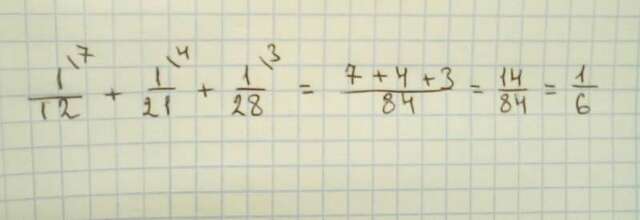 1/12 \7 + 1/21 \4 + 1/28 \3 = (7 + 4 + 3)/84 = 14/84 = 1/6